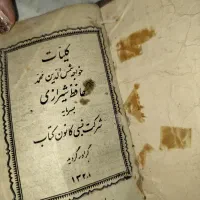 کلیات
خواجه شمس الدین محمد
حافظ شیرازی
بسرمایه
شرکت نسبی کانون کتاب
گراور گردید
۱۳۲۸